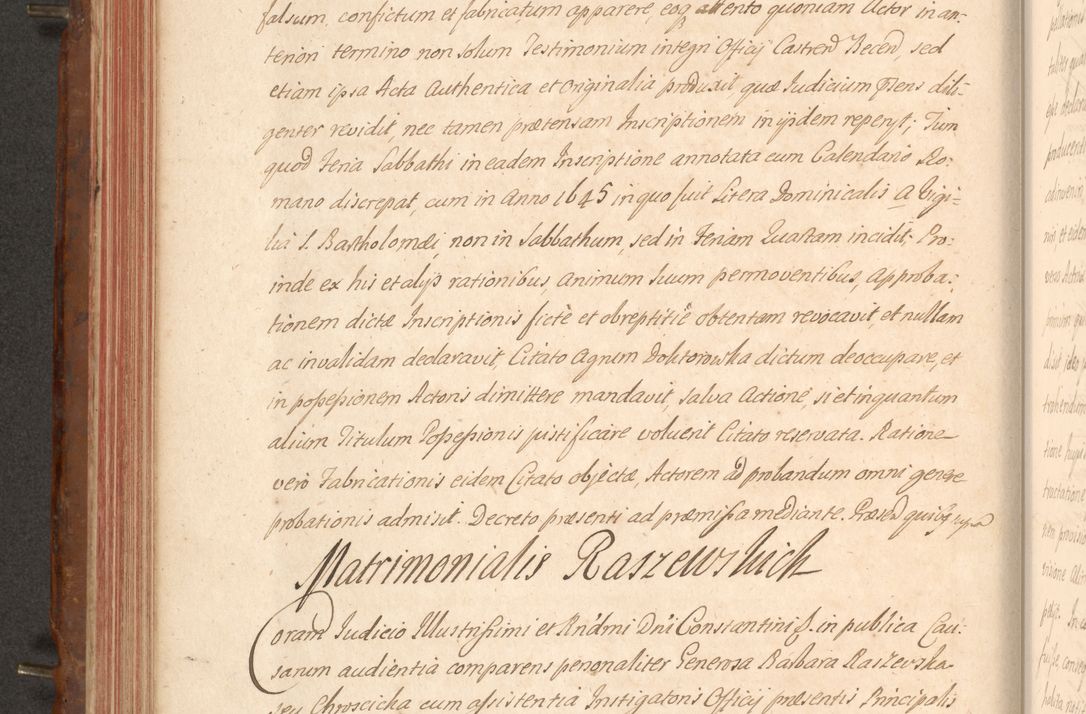 falsum, confictum et fabricatum apparere, eoq attento quoniam Actor in an-
teriori termino non solum Testimonium integri Officij Castren Recen, sed
etiam ipsa Acta Authentica et Originalia produxit quæ Judicium Præns dili-
genter revidit, nec tamen prætensam Inscriptionem in ijsdem reperyt; Tum
quod Feria Sabbathi in eadem Inscriptione annotata cum Calendario Ro-
mano discrepat, cum in Anno 1645 in quo fuit Litera Dominicalis A Vigi-
lia S. Bartholomæi, non in Sabbathum, sed in Feriam Quartam incidit; Pro-
inde ex his et alijs rationibus, Animum suum permoventibus, Approba-
tionem dictæ Inscriptionis fictè et obreptitiè obtentam revocavit, et nullam
ac invalidam declaravit, Citato Agrum Doktorowska dictum deoccupare, et
in possessionem Actoris dimittere mandavit, salva Actione, si et inquantum
alium Titulum Possessionis justificare voluerit Citato reservata. Ratione
verò Fabricationis eidem Citato objectæ, Actorem ad probandum omni genere
probationis admisit. Decreto præsenti ad præmissa mediante. Præsen quibus supra
Matrimonialis Raszewskich
Coram Judicio Illustrissimi et Rndmi Dni Constantini S. in publica Cau-
sarum audientia comparens personaliter Generosa Barbara Raszewska
seu Chroscicka cum assistentia Instigatoris Officij præsentis Principalis